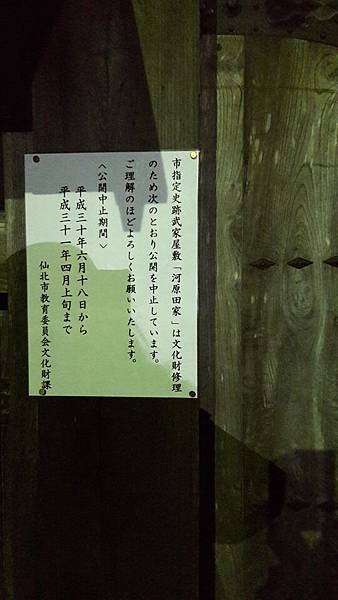 市指定史跡武家屋敷「河原田家」は文化財修理
のため次のとおり公開を中止しています。
ご理解のほどよろしくお願いいたします。
〈公開中止期間〉
平成三十年六月十八日から
平成三十一年四月上旬まで
仙北市教育委員会文化財課